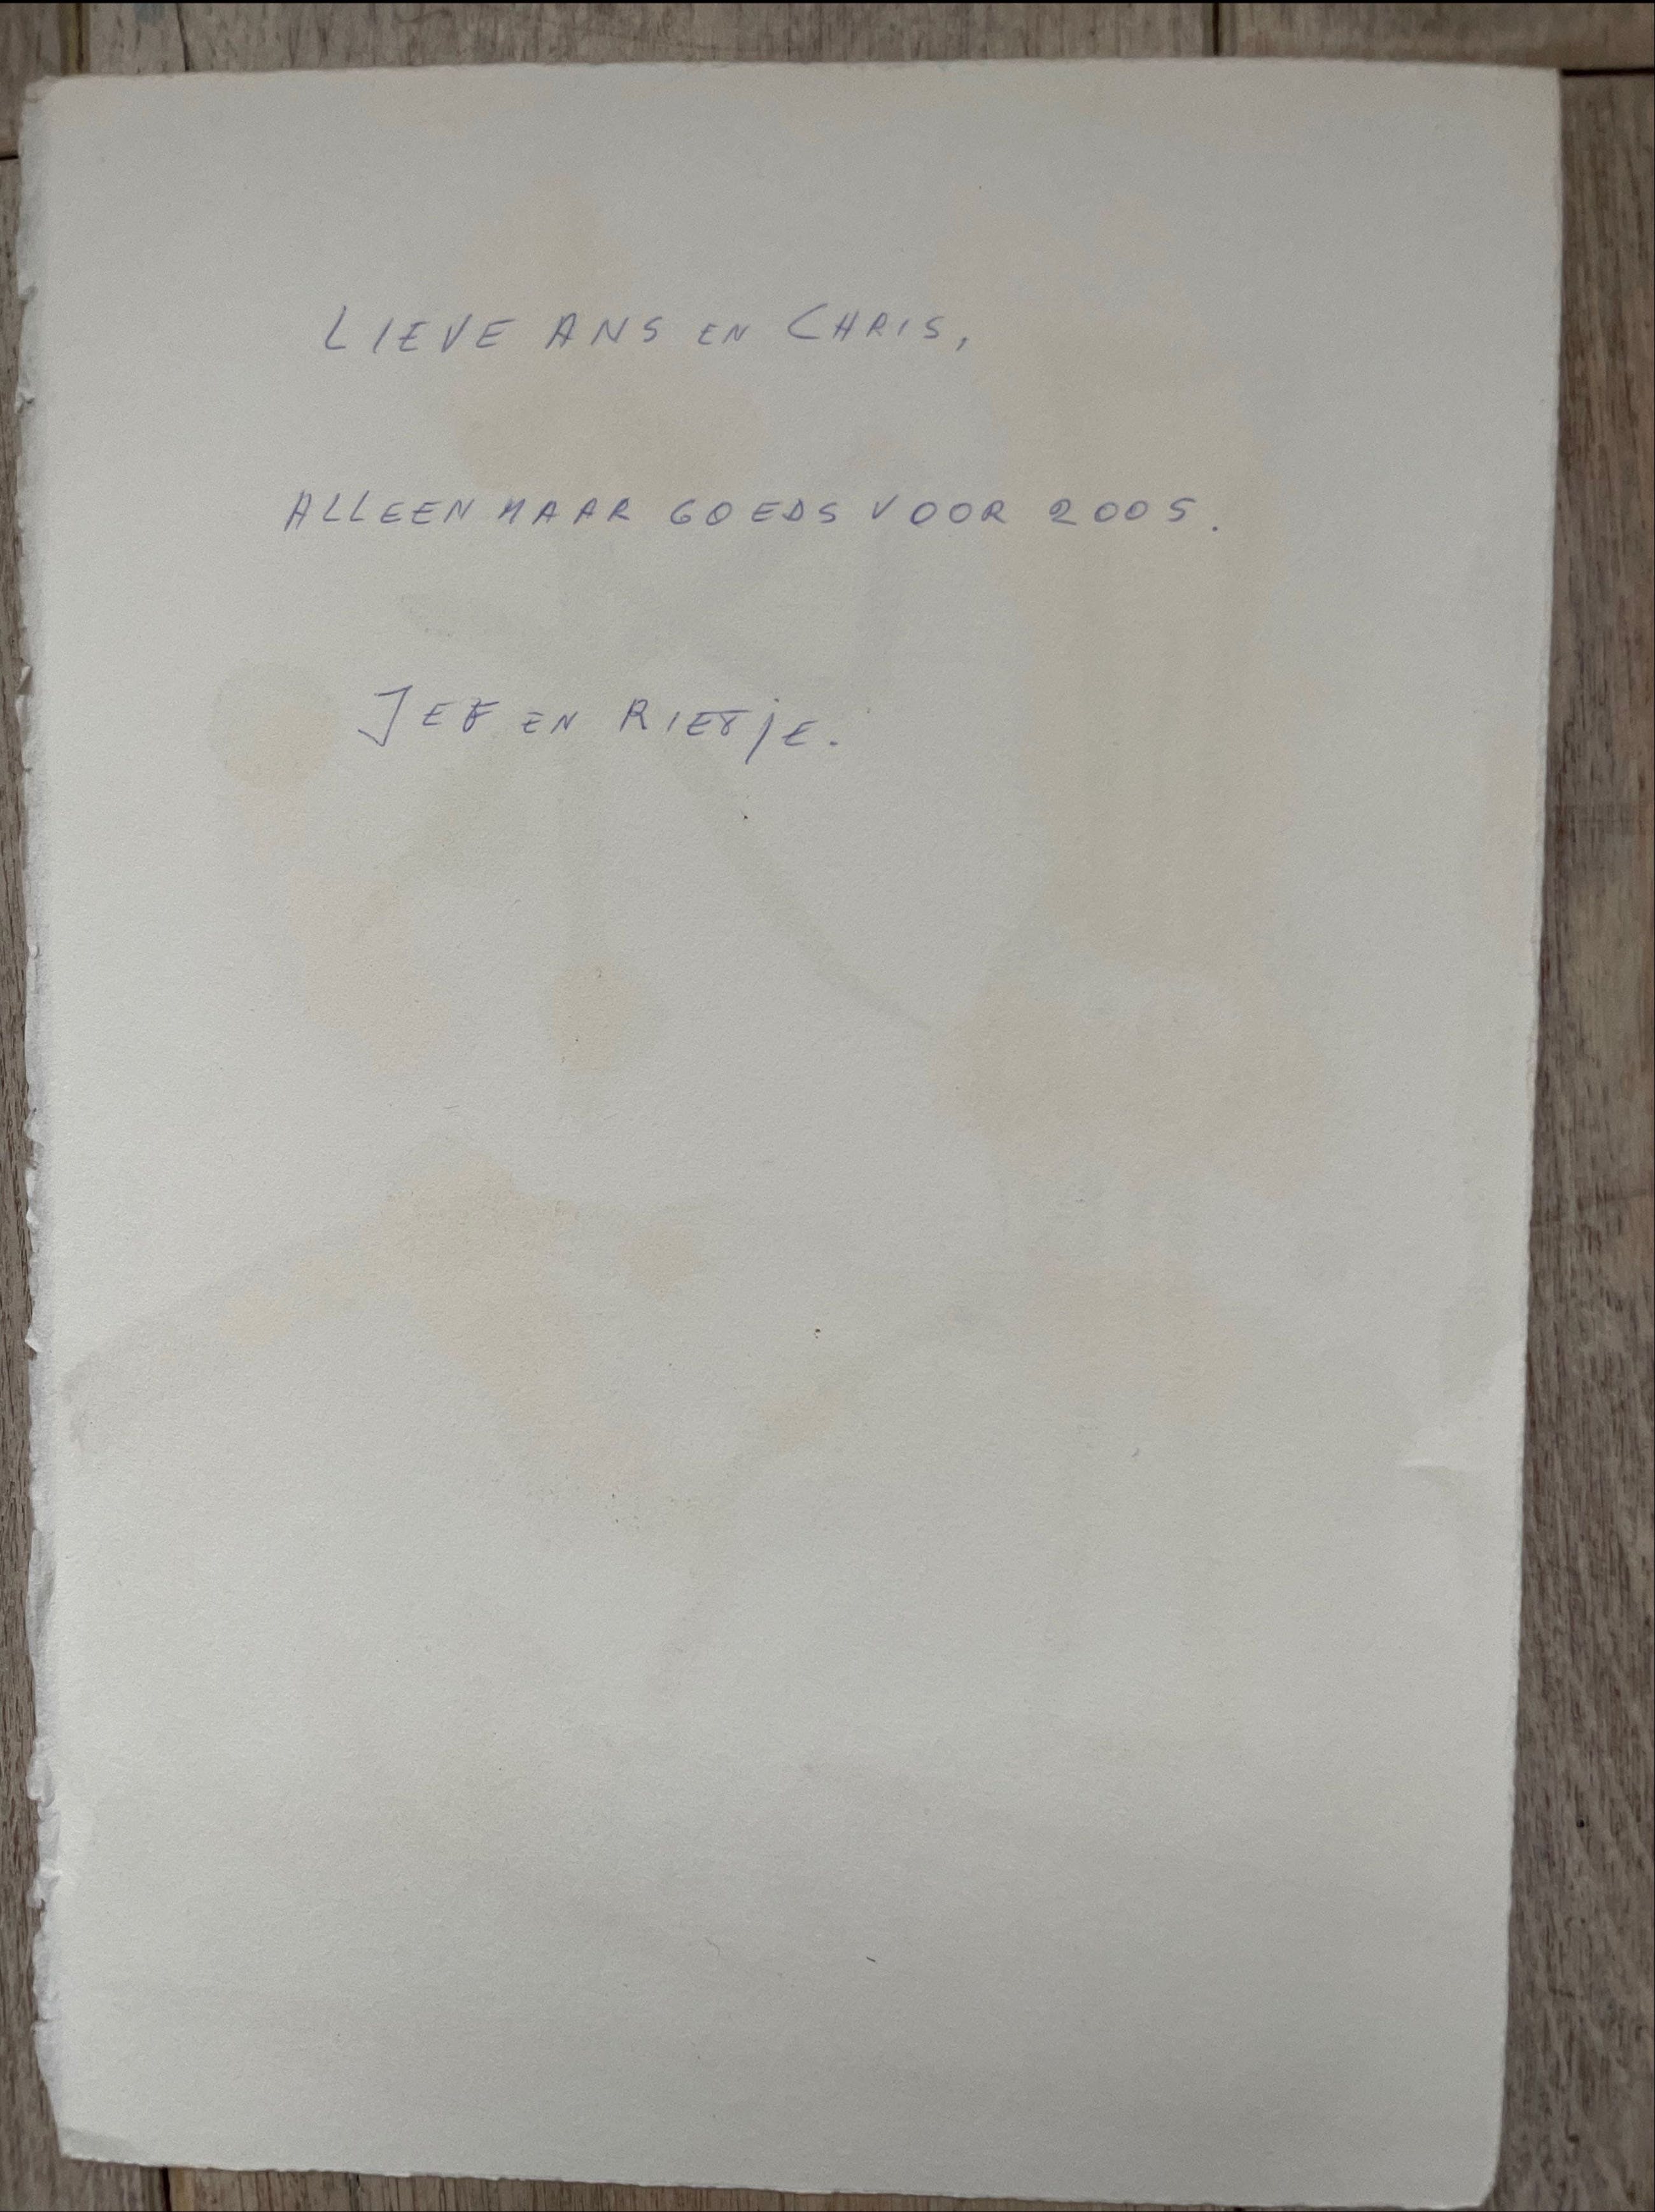 LIEVE ANS EN CHRIS,
ALLEEN MAAR GOEDS VOOR 2005.
JEF EN RIETJE.